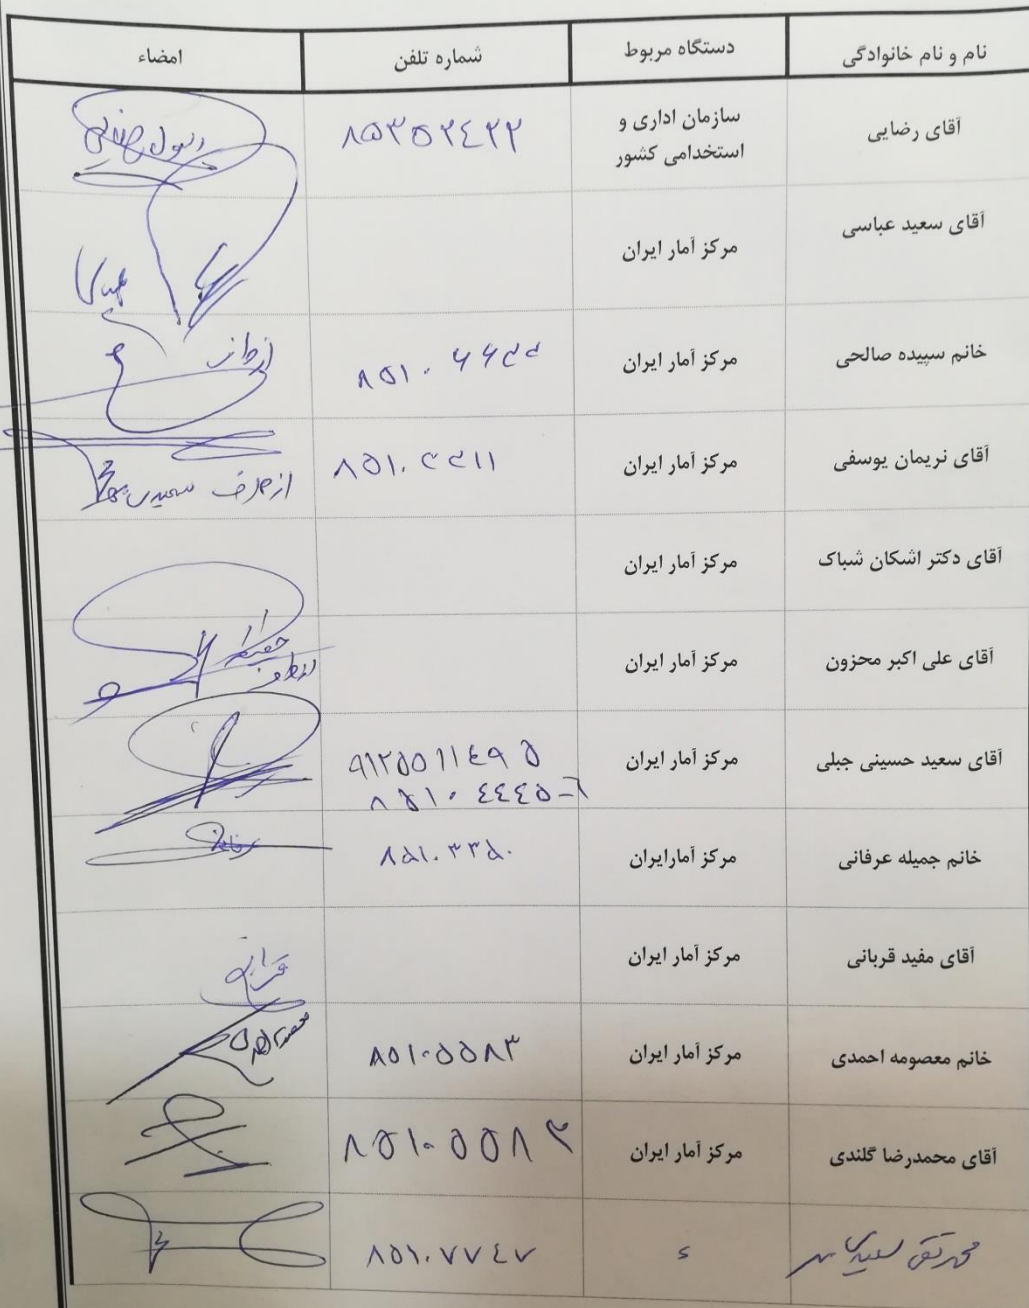 نام و نام خانوادگی	دستگاه مربوط	شماره تلفن	امضاء
آقای رضایی	سازمان اداری و استخدامی کشور	۸۵۳۵۲۴۲۲	رسول رضایی
آقای سعید عباسی	مرکز آمار ایران
خانم سپیده صالحی	مرکز آمار ایران	۸۵۱۰۶۶۲۲	از طرف
آقای نریمان یوسفی	مرکز آمار ایران	۸۵۱۰۲۲۱۱	از طرف سعیدی
آقای دکتر اشکان شباک	مرکز آمار ایران
آقای علی اکبر محزون	مرکز آمار ایران	از طرف
آقای سعید حسینی جبلی	مرکز آمار ایران	۹۱۲۵۵۱۱۴۹۵
۸۵۱۰۴۴۴۵-۶
خانم جمیله عرفانی	مرکز آمارایران	۸۵۱۰۳۳۵۰	عرفانی
آقای مفید قربانی	مرکز آمار ایران	قربانی
خانم معصومه احمدی	مرکز آمار ایران	۸۵۱۰۵۵۸۳	معصومه احمدی
آقای محمدرضا گلندی	مرکز آمار ایران	۸۵۱۰۵۵۸۳
محمدتقی	۸۵۱۰۷۷۴۷